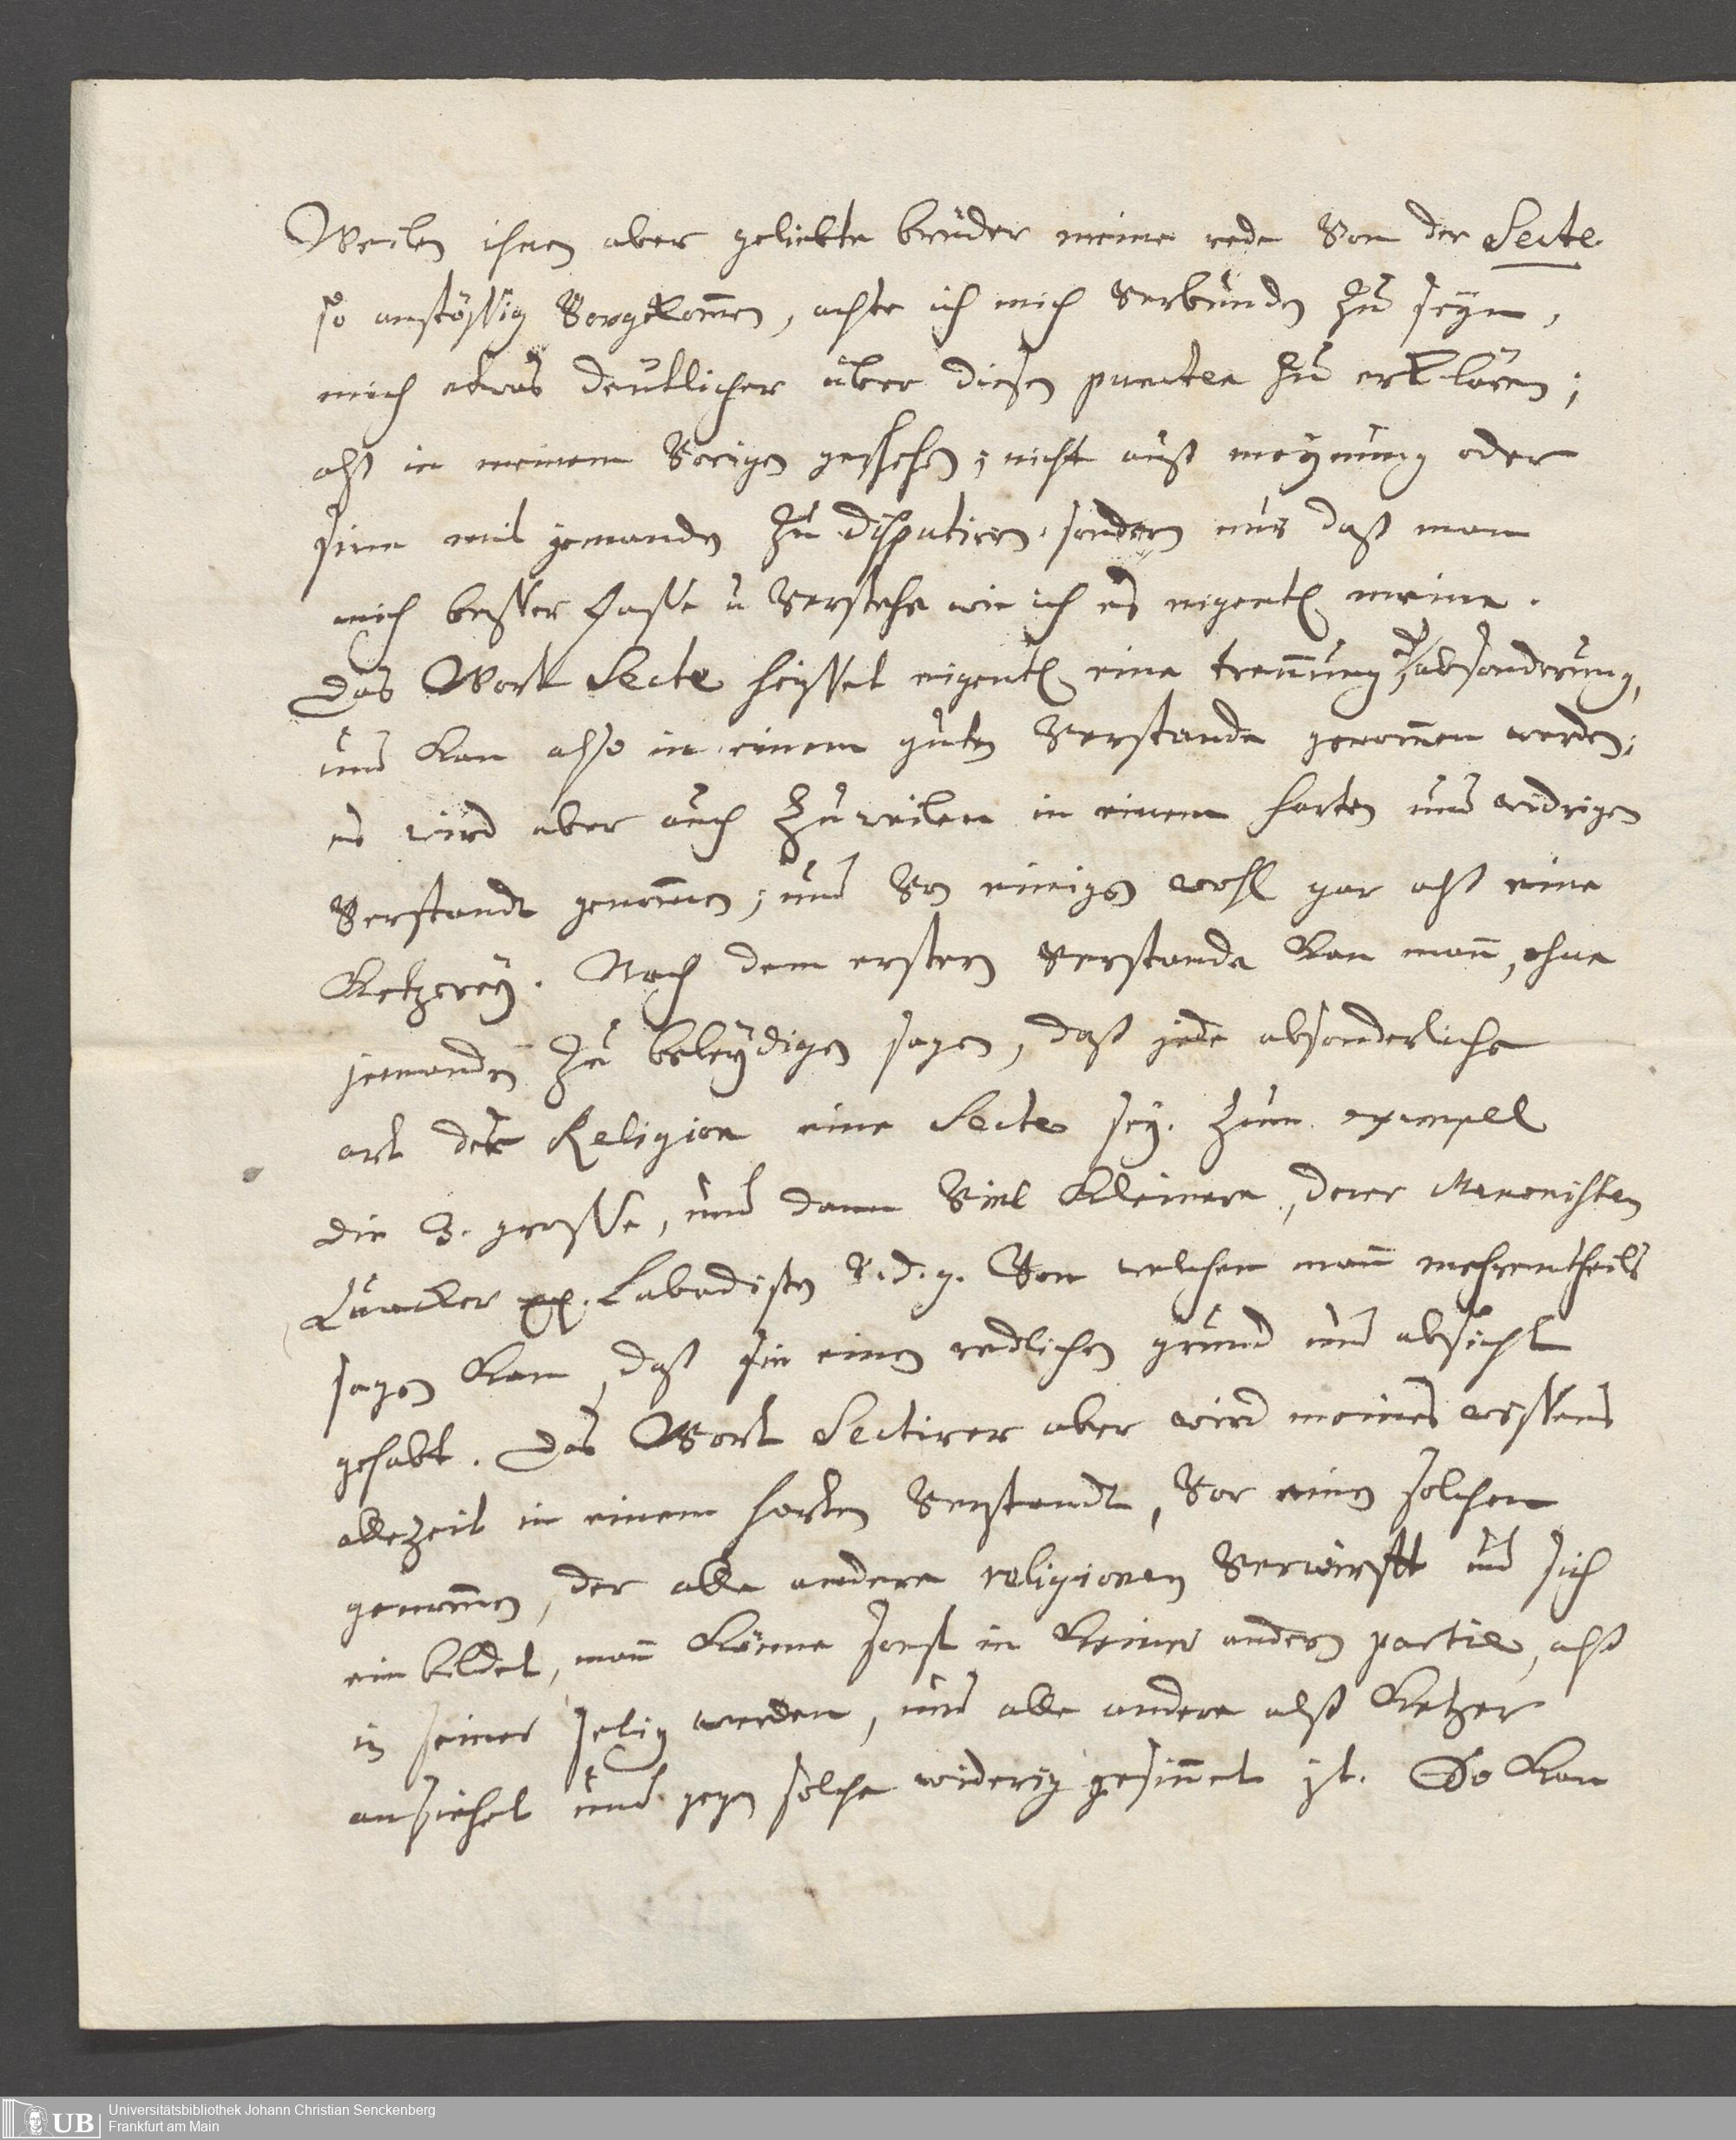 Weilen ihnen aber geliebte brüder meine rede von der Secte
so anstössig vorgekom̅en, achte ich mich verbunden zu seyn,
mich etwas deutlicher über diesen puncten zu erklären;
alß in meinem vorigen geschehen; nicht auß meynung oder
sinn mit jemanden zu disputiren. sondern nur daß man
mich besser fasse u verstehe wie ich es eigentl. meine.
Das Wort Secte heisset eigentl. eine tren̅ung absonderung,
und kan also in einem guten verstande genom̅en werden;
es wird aber auch zuweilen in einem harten und widrigen
verstandt genom̅en; und von einigen wohl gar alß eine
Ketzerey. Nach dem ersten verstande kan man̅, ohne
jemanden zu beleÿdigen sagen, daß jede absonderliche
art der Religion eine Secte seÿ. Zum exempel
die 3. grosse, und dann viel kleinere, derer Menonisten
Quacker Labadisten v.d.g. Von welchen man̅ mehrentheils
sagen kan, daß sie einen redlichen grund und absicht
gehabt. Das Wort Sectirer aber wird meines wissens
allezeit in einem harten verstandt, vor einen solchen
genom̅en, der alle andere religionen verwirfft und sich
ein bildet, man̅ könne sonst in keiner andern partie, alß
in seiner selig werden, und alle andere alß Ketzer
ansiehet und gegen solche widerig gesin̅et ist. So kan
Universitätsbibliothek Johann Christian Senckenberg
Frankfurt am Main
UB